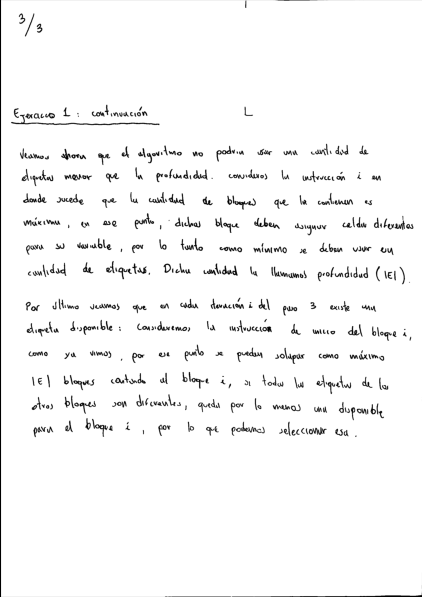 3/3
Ejercicio 1 : continuación
Veamos ahora que el algoritmo no podría usar una cantidad de
etiquetas menor que la profundidad. consideros la instrucción i en
donde sucede que la cantidad de bloques que la contienen es
máxima, en ese punto, dichos bloque deben asignar celdas diferentes
para su variable, por lo tanto como mínimo se deben usar esa
cantidad de etiquetas. Dicha cantidad la llamamos profundidad (|E|).
Por último veamos que en cada iteración i del paso 3 existe una
etiqueta disponible: Consideremos la instrucción de inicio del bloque i,
como ya vimos, por ese punto se pueden solapar como máximo
|E| bloques contando al bloque i, si todas las etiquetas de los
otros bloques son diferentes, queda por lo menos una disponible
para el bloque i, por lo que podemos seleccionar esa.